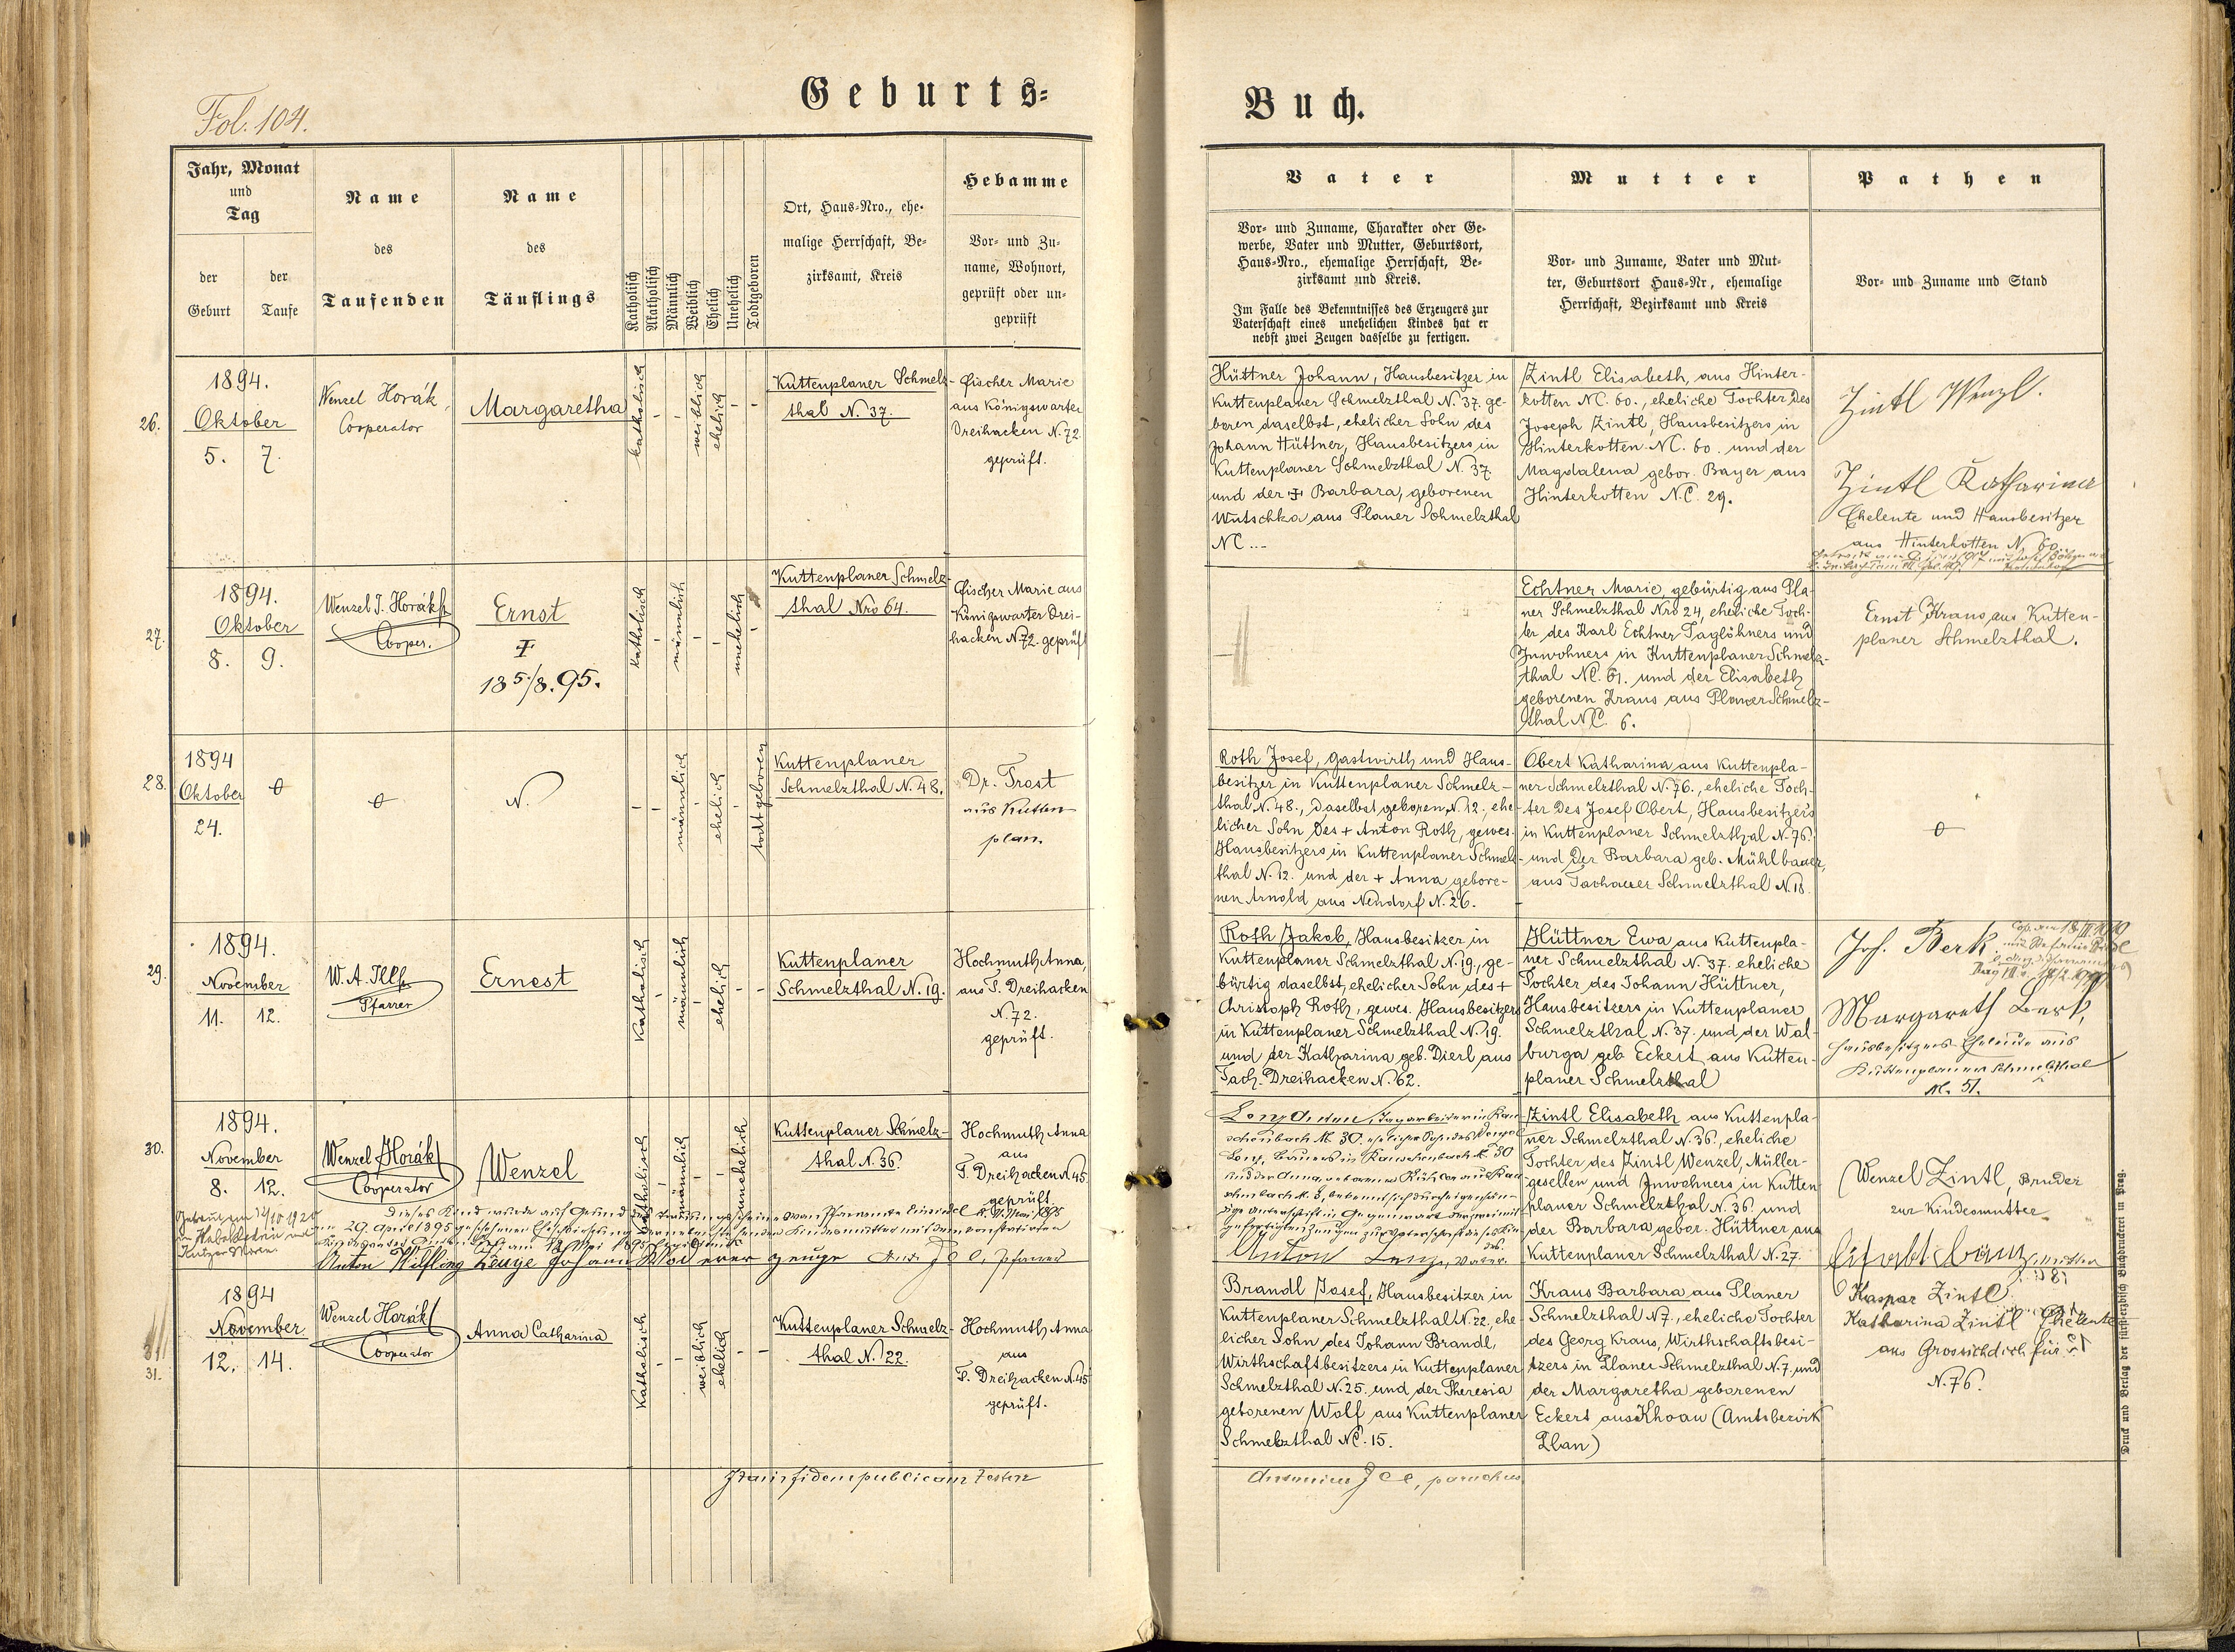 Fol. 104.
Geburts-
Jahr, Monat
und
Tag
der
Geburt
der
Taufe
Name
des
Taufenden
Name
des
Täuflings
Katholisch
Akatholisch
Männlich
Weiblich
Ehelich
Unehelich
Todtgeboren
Ort, Haus-Nro., ehe-
malige Herrschaft, Be-
zirksamt, Kreis
Hebamme
Vor- und Zu-
name, Wohnort,
geprüft oder un-
geprüft
26.
1894.
Oktober
5. 7.
Wenzel Horák,
Cooperator
Margaretha
katholisch
-
-
weiblich
ehelich
-
-
Kuttenplaner Schmelz-
thal N. 37.
Fischer Marie
aus Königswarter
Dreihacken N. 72.
geprüft.
27.
1894.
Oktober
8. 9.
Wenzel J. Horák
Cooper.
Ernst
‡
18 5/8. 95.
katholisch
-
männlich
-
-
unehelich
-
Kuttenplaner Schmelz-
thal Nro 64.
Fischer Marie aus
Königswarter Drei-
hacken N. 72. geprüft
28.
1894
Oktober
24.
N.
-
-
männlich
-
ehelich
-
todtgeboren
Kuttenplaner
Schmelzthal N. 48.
Dr. Trost
aus Kutten
plan.
29.
1894.
November
11. 12.
W. A. Illk
Pfarrer
Ernest
Katholisch
-
männlich
-
ehelich
-
-
Kuttenplaner
Schmelzthal N. 19.
Hochmuth Anna,
aus T. Dreihacken
N. 72.
geprüft.
30.
1894.
November
8. 12.
Wenzel Horák
Cooperator
Wenzel
Katholisch
-
männlich
-
-
unehelich
Kuttenplaner Schmelz-
thal N. 36.
Hochmuth Anna
aus
T. Dreihacken N. 45
geprüft.
Dieses Kind wurde auf Grund des
am 29. April 1895 geschlossenen
Anton Wilfling Zeuge Johann zeuge Pfarrer
31.
1894
November
12. 14.
Wenzel Horák
Cooperator
Anna Catharina
Katholisch
-
-
weiblich
ehelich
-
-
Kuttenplaner Schmelz-
thal N. 22.
Hochmuth Anna
aus
T. Dreihacken N. 45
geprüft.
Ita in fidem publicam testor
Buch.
Vater
Vor- und Zuname, Charakter oder Ge-
werbe, Vater und Mutter, Geburtsort,
Haus-Nro., ehemalige Herrschaft, Be-
zirksamt und Kreis.
Im Falle des Bekenntnisses des Erzeugers zur
Vaterschaft eines unehelichen Kindes hat er
nebst zwei Zeugen dasselbe zu fertigen.
Mutter
Vor- und Zuname, Vater und Mut-
ter, Geburtsort Haus-Nr, ehemalige
Herrschaft, Bezirksamt und Kreis
Pathen
Vor- und Zuname und Stand
Hüttner Johann, Hausbesitzer in
Kuttenplaner Schmelzthal N. 37. ge-
boren daselbst, ehelicher Sohn des
Johann Hüttner, Hausbesitzers in
Kuttenplaner Schmelzthal N. 37
und der ‡ Barbara, geborenen
Wutschka aus Planer Schmelzthal
NC ...
Zintl Elisabeth, aus Hinter-
kotten NC. 60., eheliche Tochter des
Joseph Zintl, Hausbesitzers in
Hinterkotten NC. 60. und der
Magdalena gebor. Bayer aus
Hinterkotten N.C. 29.
Zintl Wenzl.
Zintl Katharina
Eheleute und Hausbesitzer
aus Hinterkotten N 60.
Echtner Marie, gebürtig aus Pla-
ner Schmelzthal Nro 24, eheliche Toch-
ter des Karl Echtner Taglöhners und
Inwohners in Kuttenplaner Schmelz-
thal NC. 61. und der Elisabeth
geborenen Kraus aus Planer Schmelz-
thal NC. 6.
Ernst Kraus, aus Kutten-
planer Schmelzthal.
Roth Josef, Gastwirth und Haus-
besitzer in Kuttenplaner Schmelz-
thal N. 48., daselbst geboren N. 12., ehe-
licher Sohn des + Anton Roth, gewes.
Hausbesitzers in Kuttenplaner Schmelz-
thal N. 12. und der + Anna gebore-
nen Arnold aus Neudorf N. 26.
Obert Katharina aus Kuttenpla-
ner Schmelzthal N. 76., eheliche Toch-
ter des Josef Obert, Hausbesitzers
in Kuttenplaner Schmelzthal N. 76.
und der Barbara geb. Mühlbauer,
aus Tachauer Schmelzthal N. 18.
Roth Jakob, Hausbesitzer in
Kuttenplaner Schmelzthal N. 19., ge-
bürtig daselbst, ehelicher Sohn des +
Christoph Roth, gewes. Hausbesitzers
in Kuttenplaner Schmelzthal N. 19.
und der Katharina geb. Dierl aus
Tach. Dreihacken N. 62.
Hüttner Ewa aus Kuttenpla-
ner Schmelzthal N. 37. eheliche
Tochter des Johann Hüttner,
Hausbesitzers in Kuttenplaner
Schmelzthal N. 37. und der Wal-
burga geb. Eckert aus Kutten-
planer Schmelzthal
Jos. Berk
Margareth Berk,
Hausbesitzers Eheleute aus
Kuttenplaner Schmelzthal
N. 51.
Lenz Anton, Tagarbeiter in Rau-
schenbach N. 30. ehelicher Sohn des Wenzel
Lenz, Bauers in Rauschenbach N. 30
und der Anna, geborenen aus Rau-
schenbach N. 8, bekennt sich durch eigenhän-
dige Unterschrift in Gegenwart der zwei mit-
gefertigten Zeugen zur Vaterschaft dieses Kin-
des.
Anton Lenz, Vater.
Zintl Elisabeth aus Kuttenpla-
ner Schmelzthal N. 36., eheliche
Tochter des Zintl Wenzel, Müller-
gesellen und Inwohners in Kutten-
planer Schmelzthal N. 36. und
der Barbara gebor. Hüttner, aus
Kuttenplaner Schmelzthal N. 27.
Wenzel Zintl, Bruder
zur Kindesmutter
Brandl Josef, Hausbesitzer in
Kuttenplaner Schmelzthal N. 22., ehe-
licher Sohn des Johann Brandl,
Wirthschaftbesitzers in Kuttenplaner
Schmelzthal N. 25. und der Theresia
geborenen Wolf aus Kuttenplaner
Schmelzthal NC. 15.
Kraus Barbara aus Planer
Schmelzthal N 7., eheliche Tochter
des Georg Kraus, Wirthschaftsbesi-
tzers in Planer Schmelzthal N. 7. und
der Margaretha geborenen
Eckert aus Khoau (Amtsbezirk
Plan)
Kaspar Zintl
Katharina Zintl Eheleute
aus Grossichdichfür
N. 76.
Antonius Ill, parochus
Druck und Verlag der fürsterzbisch. Buchdruckerei in Prag.